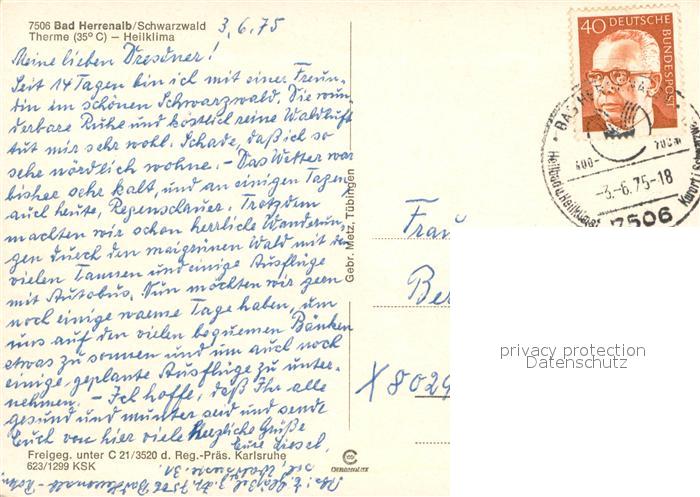 7506 Bad Herrenalb/Schwarzwald
Therme (35° C) – Heilklima
3.6.75
Meine lieben Dresdner!
Seit 14 Tagen bin ich mit einer Freun-
din im schönen Schwarzwald. Die wun-
derbare Ruhe und köstlich reine Waldluft
tut mir sehr wohl. Schade, daß ich so
sehr nördlich wohne. - Das Wetter war
bisher sehr kalt, und an einigen Tagen
auch heute, Regenschauer. Trotzdem
machten wir schon herrliche Wanderun-
gen durch den maigrünen Wald mit den
vielen Tannen und einige Ausflüge
mit Autobus. Nun möchten wir gern
noch einige warme Tage haben, um
uns auf den vielen bequemen Bänken
etwas zu sonnen und um auch noch
einige geplante Ausflüge zu unter-
nehmen. - Ich hoffe, daß Ihr alle
gesund und munter seid und sende
Euch von hier viele herzliche Grüße
Eure Liesel.
Freigeg. unter C 21/3520 d. Reg.-Präs. Karlsruhe
623/1299 KSK
Gebr. Metz, Tübingen
40 DEUTSCHE BUNDESPOST
-3.-6.75-18
7506
Frau
Ber
X 8029
privacy protection
Datenschutz